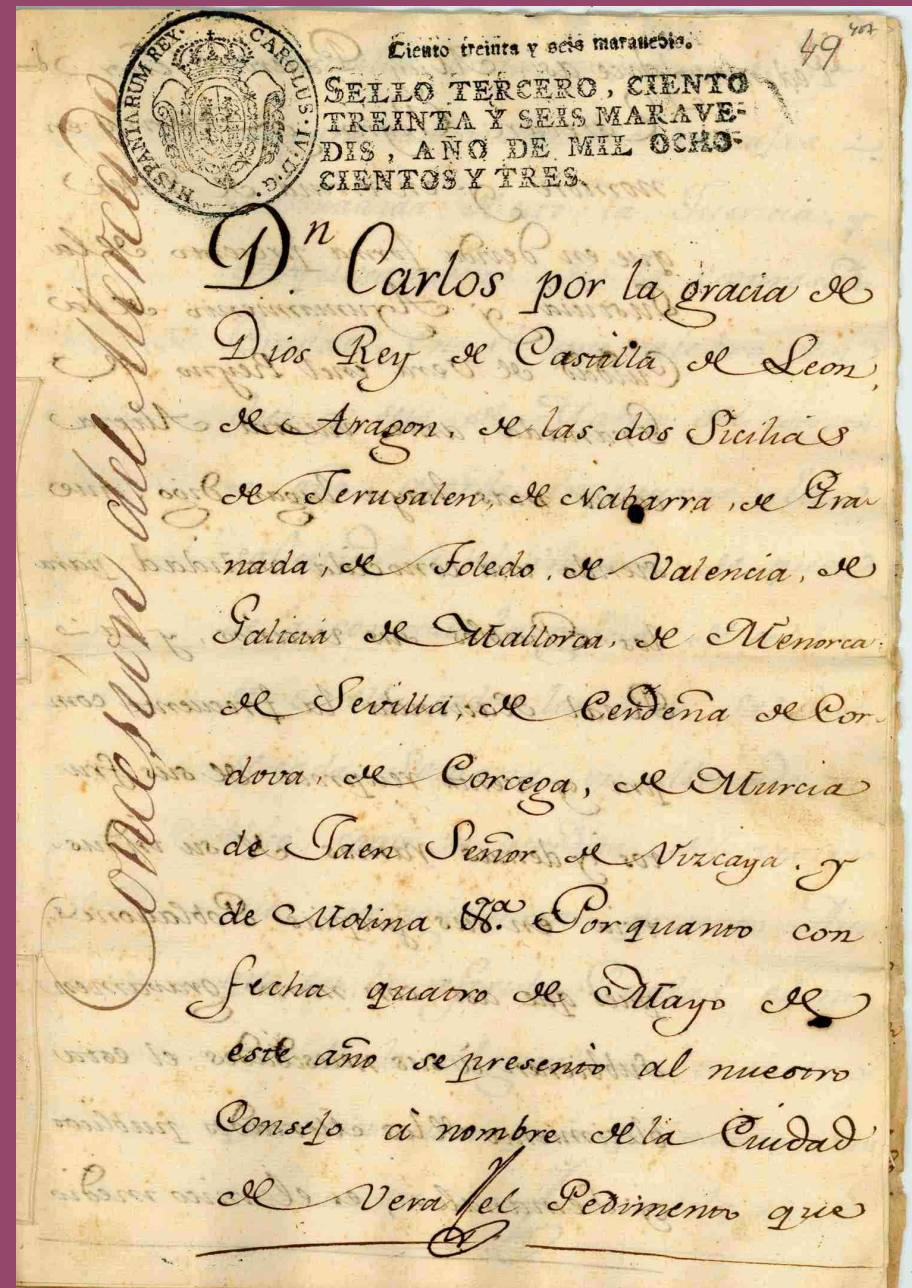 407
49
HISPANIARUM REX. CAROLUS IV. D. G.
Ciento treinta y seis maravedis.
SELLO TERCERO, CIENTO
TREINTA Y SEIS MARAVE-
DIS, AÑO DE MIL OCHO-
CIENTOS Y TRES.
Concesion del Mercado
Dn. Carlos por la gracia de
Dios Rey de Castilla de Leon,
de Aragon, de las dos Sicilias
de Jerusalen, de Nabarra, de Gra-
nada, de Toledo, de Valencia, de
Galicia de Mallorca, de Menorca
de Sevilla, de Cerdeña de Cor-
dova, de Corcega, de Murcia
de Jaen Señor de Vizcaya. y
de Molina &a. Por quanto con
fecha quatro de Mayo de
este año se presento al nuestro
Consejo à nombre de la Ciudad
de Vera el Pedimento que